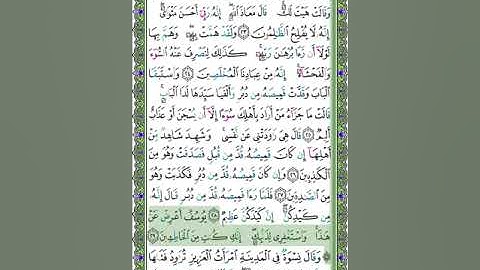 وَقَالَتْ هَيْتَ لَكَ ۚ قَالَ مَعَاذَ ٱللَّهِ ۖ إِنَّهُۥ رَبِّىٓ أَحْسَنَ مَثْوَاىَ ۖ
إِنَّهُۥ لَا يُفْلِحُ ٱلظَّٰلِمُونَ ﴿٢٣﴾ وَلَقَدْ هَمَّتْ بِهِۦ ۖ وَهَمَّ بِهَا
لَوْلَآ أَن رَّءَا بُرْهَٰنَ رَبِّهِۦ ۚ كَذَٰلِكَ لِنَصْرِفَ عَنْهُ ٱلسُّوٓءَ
وَٱلْفَحْشَآءَ ۚ إِنَّهُۥ مِنْ عِبَادِنَا ٱلْمُخْلَصِينَ ﴿٢٤﴾ وَٱسْتَبَقَا
ٱلْبَابَ وَقَدَّتْ قَمِيصَهُۥ مِن دُبُرٍ وَأَلْفَيَا سَيِّدَهَا لَدَا ٱلْبَابِ ۚ
قَالَتْ مَا جَزَآءُ مَنْ أَرَادَ بِأَهْلِكَ سُوٓءًا إِلَّآ أَن يُسْجَنَ أَوْ عَذَابٌ
أَلِيمٌ ﴿٢٥﴾ قَالَ هِىَ رَٰوَدَتْنِى عَن نَّفْسِى ۚ وَشَهِدَ شَاهِدٌ مِّنْ
أَهْلِهَآ إِن كَانَ قَمِيصُهُۥ قُدَّ مِن قُبُلٍ فَصَدَقَتْ وَهُوَ مِنَ
ٱلْكَٰذِبِينَ ﴿٢٦﴾ وَإِن كَانَ قَمِيصُهُۥ قُدَّ مِن دُبُرٍ فَكَذَبَتْ وَهُوَ
مِنَ ٱلصَّٰدِقِينَ ﴿٢٧﴾ فَلَمَّا رَءَا قَمِيصَهُۥ قُدَّ مِن دُبُرٍ قَالَ إِنَّهُۥ
مِن كَيْدِكُنَّ ۖ إِنَّ كَيْدَكُنَّ عَظِيمٌ ﴿٢٨﴾ يُوسُفُ أَعْرِضْ عَنْ
هَٰذَا ۚ وَٱسْتَغْفِرِى لِذَنۢبِكِ ۖ إِنَّكِ كُنتِ مِنَ ٱلْخَاطِـِٔينَ ﴿٢٩﴾
وَقَالَ نِسْوَةٌ فِى ٱلْمَدِينَةِ ٱمْرَأَتُ ٱلْعَزِيزِ تُرَٰوِدُ فَتَىٰهَا